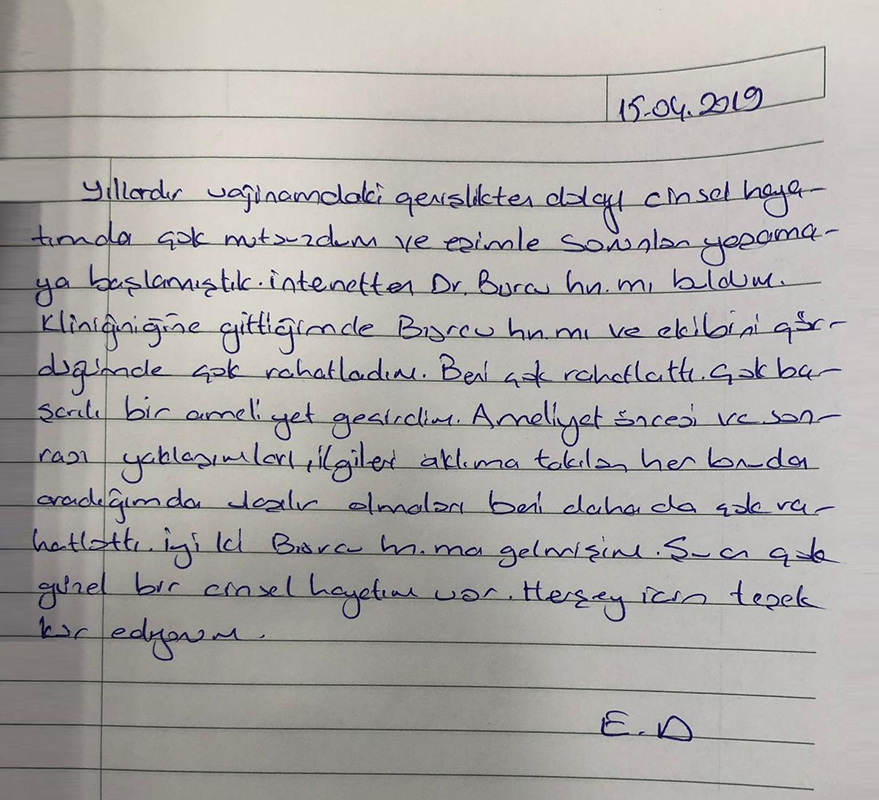 15.04.2019
Yıllardır vağinamdaki genişlikten dolayı cinsel haya-
tımda çok mutsuzdum ve eşimle sorunlar yaşama-
ya başlamıştık. internetten Dr. Burcu hn.mı buldum.
Kliniğiniğine gittiğimde Burcu hn.mı ve ekibini gör-
düğümde çok rahatladım. Beni çok rahatlattı. Çok ba-
şarılı bir ameliyet geçirdim. Ameliyet öncesi ve son-
rası yaklaşımları, ilgileri aklıma takılan her konuda
aradığımda olmaları beni daha da çok ra-
hatlattı. iyi ki Burcu hn.ma gelmişim. Şu an çok
güzel bir cinsel hayatım var. Herşey için teşek
kür ediyorum.
E.D